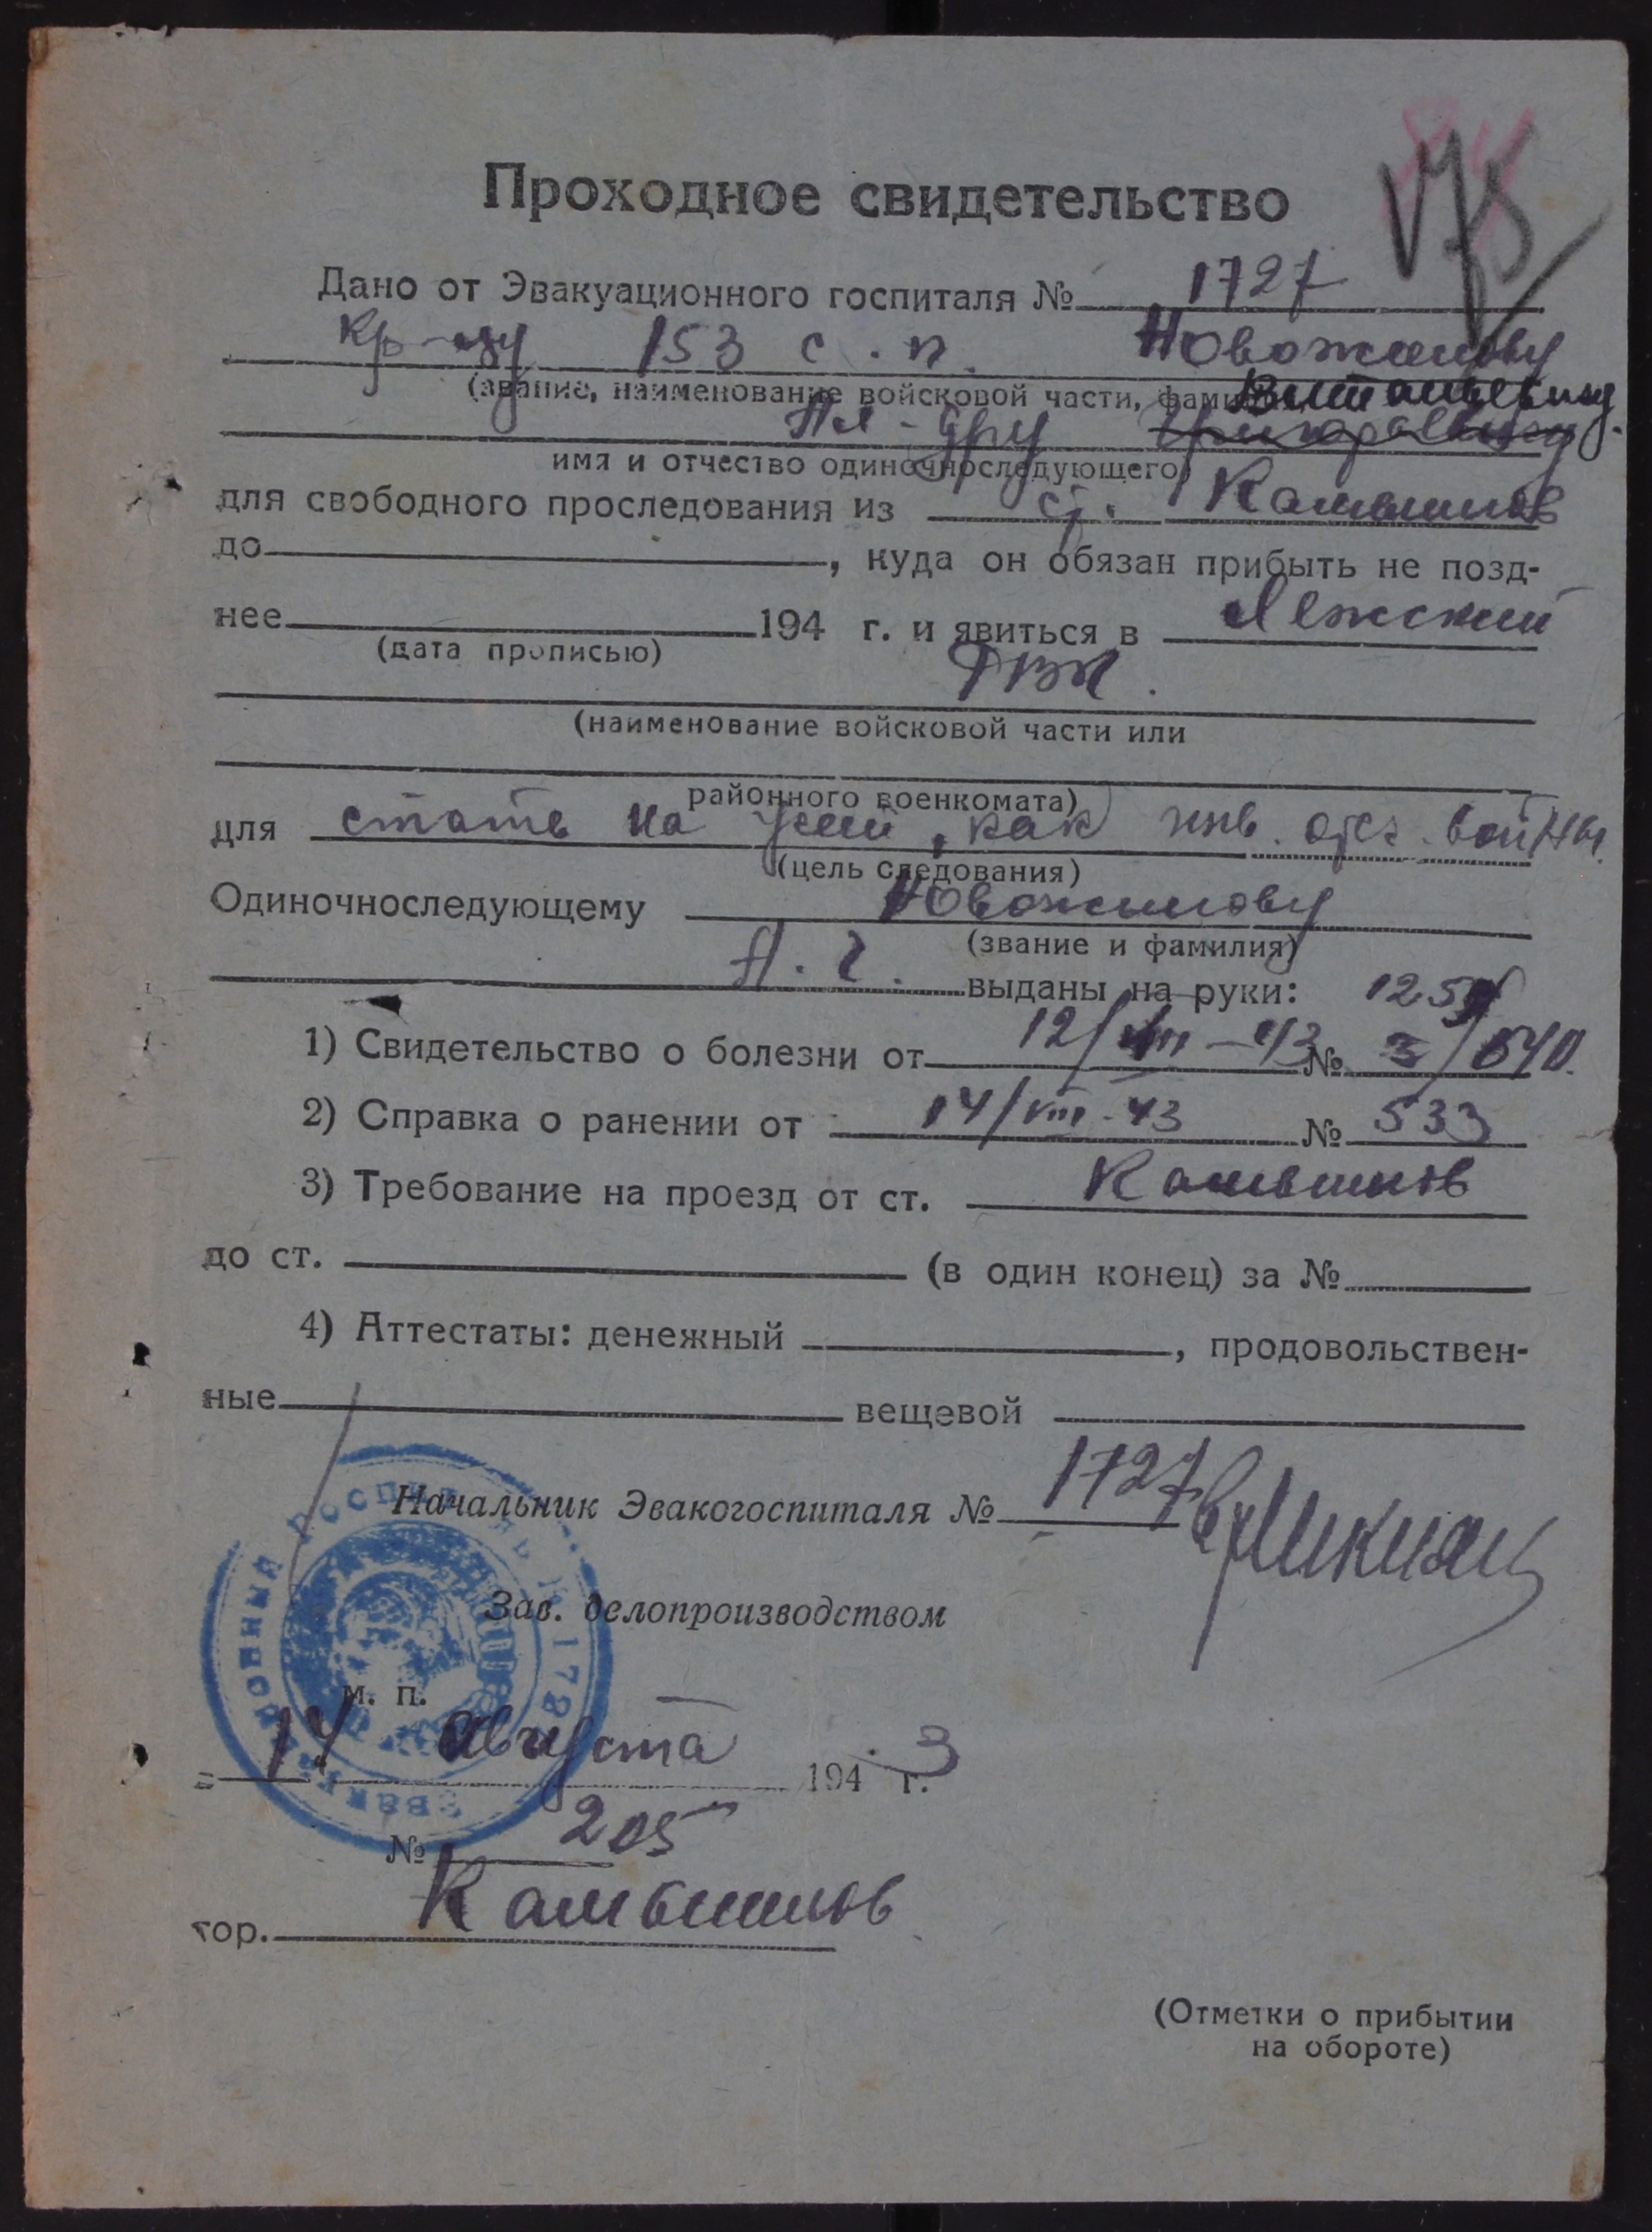 175
Проходное свидетельство
Дано от Эвакуационного госпиталя № 1727
Кр-цу 153 с. п. Новожилову
(звание, наименование войсковой части, фамилия,
Витальевичу
Ал-дру Григорьевичу
имя и отчество одиночноследующего)
для свободного проследования из ст. Камышлов
до , куда он обязан прибыть не позд-
нее 194 г. и явиться в Лежский
(дата прописью)
РВК.
(наименование войсковой части или
районного военкомата)
для стать на учет, как инв. отеч. войны.
(цель следования)
Одиночноследующему Новожилову
(звание и фамилия)
А. Г. выданы на руки:
1254
1) Свидетельство о болезни от 12/VIII-43 № 3/640.
2) Справка о ранении от 14/VIII-43 № 533
3) Требование на проезд от ст. Камышлов
до ст. (в один конец) за №
4) Аттестаты: денежный , продовольствен-
ные вещевой
Начальник Эвакогоспиталя № 1727
Зав. делопроизводством
м. п.
14 Августа 1943 г.
№ 205
гор. Камышлов
(Отметки о прибытии
на обороте)